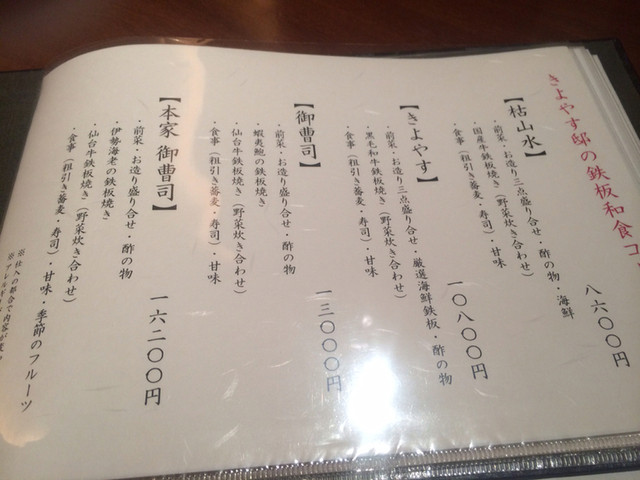 きよやす邸の鉄板和食コ
【枯山水】
八六〇〇円
・前菜・お造り三点盛り合せ・酢の物・海鮮
・国産牛鉄板焼き(野菜炊き合わせ)
・食事(粗引き蕎麦・寿司)・甘味
【きよやす】
一〇八〇〇円
・前菜・お造り三点盛り合せ・厳選海鮮鉄板・酢の物
・黒毛和牛鉄板焼き(野菜炊き合わせ)
・食事(粗引き蕎麦・寿司)・甘味
【御曹司】
一三〇〇〇円
・前菜・お造り盛り合せ・酢の物
・蝦夷鮑の鉄板焼き
・仙台牛鉄板焼き(野菜炊き合わせ)
・食事(粗引き蕎麦・寿司)・甘味
【本家 御曹司】
一六二〇〇円
・前菜・お造り盛り合せ・酢の物
・伊勢海老の鉄板焼き
・仙台牛鉄板焼き(野菜炊き合わせ)
・食事(粗引き蕎麦・寿司)・甘味・季節のフルーツ
※仕入の都合で内容が変わ
※アレルギー